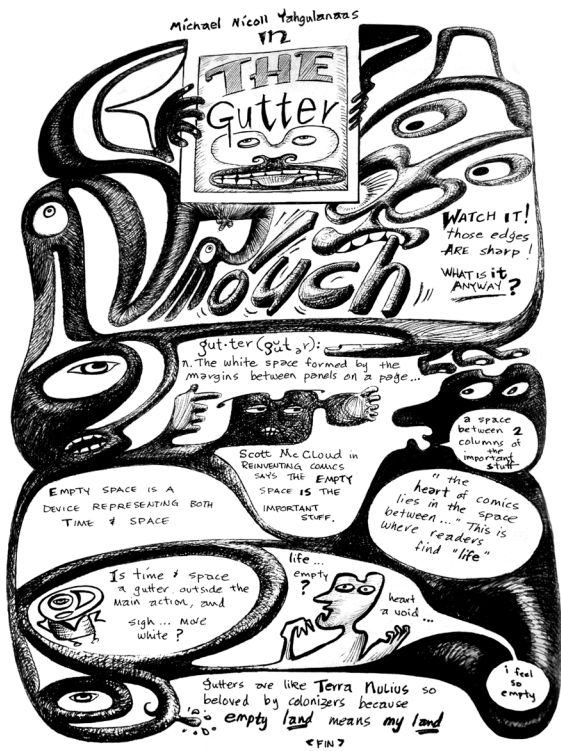 Michael Nicoll Yahgulanaas
in
THE
Gutter
Ouch
WATCH IT!
those edges
ARE sharp!
WHAT IS it
ANYWAY?
gut·ter (gŭt ər):
n. The white space formed by the
margins between panels on a page...
a space
between 2
columns of
the
important
stuff
Scott McCloud in
REINVENTING COMICS
SAYS THE EMPTY
SPACE IS THE
IMPORTANT
STUFF.
EMPTY SPACE IS A
DEVICE REPRESENTING BOTH
TIME & SPACE
"the
heart of comics
lies in the space
between..." This is
where readers
find "life"
Is time & space
a gutter outside the
main action, and
sigh... more
white?
life...
empty
?
heart
a void...
i feel
so
empty
gutters are like Terra Nulius so
beloved by colonizers because
empty land means my land
<FIN>